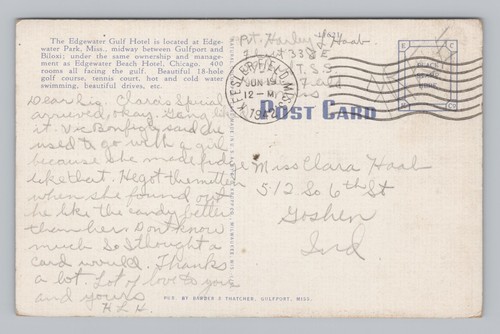 The Edgewater Gulf Hotel is located at Edge-
water Park, Miss., midway between Gulfport and
Biloxi; under the same ownership and manage-
ment as Edgewater Beach Hotel, Chicago. 400
rooms all facing the gulf. Beautiful 18-hole
golf course, tennis court, hot and cold water
swimming, beautiful drives, etc.
Dear Sis. Clara's Special
arrived, okay. Gang like
it. Vic Bonfigly said he
used to go with a girl
because she made fudge
like that. He got the mitten
when she found out
he like the candy better
than her. Dont know
much So thought a
card would. Thanks
a lot. Lot of love to you
and yours
H L H.
Pvt. Harley L Haab
338
T.S.S.
KEESLER FIELD, MISS.
JUN 19
12-M
1942
PLACE
STAMP
HERE
POST CARD
Miss Clara Haab
512 So 6th St
Goshen
Ind
PUB. BY BARBER & THATCHER, GULFPORT, MISS.